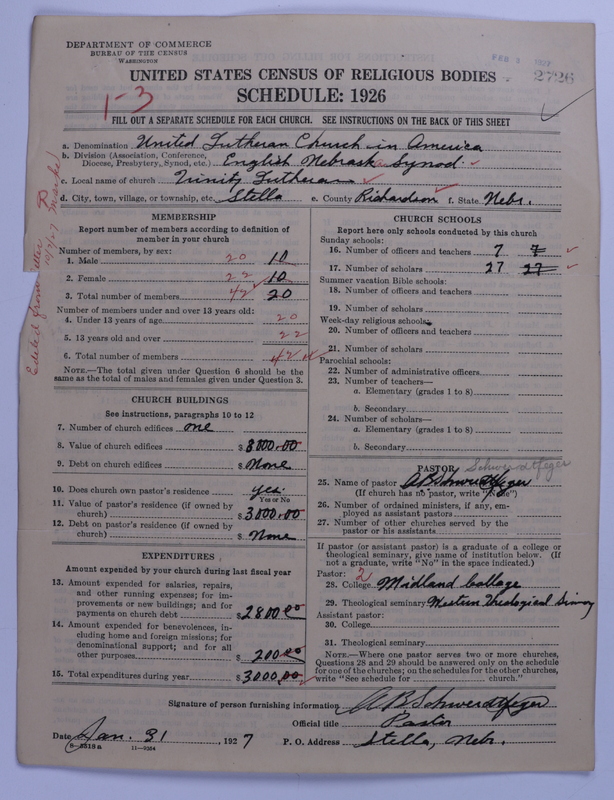 DEPARTMENT OF COMMERCE
BUREAU OF THE CENSUS
WASHINGTON
FEB 1927
2726
UNITED STATES CENSUS OF RELIGIOUS BODIES
SCHEDULE: 1926
1-3
FILL OUT A SEPARATE SCHEDULE FOR EACH CHURCH. SEE INSTRUCTIONS ON THE BACK OF THIS SHEET
a. Denomination United Lutheran Church in America
b. Division (Association, Conference,
Diocese, Presbytery, Synod, etc.) English Nebraska Synod.
c. Local name of church Trinity Lutheran
d. City, town, village, or township, etc. Stella e. County Richardson f. State Nebr.
Edited from letter
MEMBERSHIP
Report number of members according to definition of
member in your church
Number of members, by sex:
1. Male 20 10
2. Female 22 10
3. Total number of members 42 20
Number of members under and over 13 years old:
4. Under 13 years of age 20
5. 13 years old and over 22
6. Total number of members 42
NOTE.—The total given under Question 6 should be
same as the total of males and females given under Question 3.
CHURCH BUILDINGS
See instructions, paragraphs 10 to 12
7. Number of church edifices one
8. Value of church edifices $ 8000.00
9. Debt on church edifices $ None
10. Does church own pastor's residence yes.
Yes or No
11. Value of pastor's residence (if owned by
church) $ 3000.00
12. Debt on pastor's residence (if owned by
church) $ None
EXPENDITURES
Amount expended by your church during last fiscal year
13. Amount expended for salaries, repairs,
and other running expenses; for im-
provements or new buildings; and for
payments on church debt $ 2800.00
14. Amount expended for benevolences, in-
cluding home and foreign missions; for
denominational support; and for all
other purposes $ 200.00
15. Total expenditures during year $ 3000.00
CHURCH SCHOOLS
Report here only schools conducted by this church
Sunday schools:
16. Number of officers and teachers 7 7
17. Number of scholars 27 27
Summer vacation Bible schools:
18. Number of officers and teachers
19. Number of scholars
Week-day religious schools:
20. Number of officers and teachers
21. Number of scholars
Parochial schools:
22. Number of administrative officers
23. Number of teachers—
a. Elementary (grades 1 to 8)
b. Secondary
24. Number of scholars—
a. Elementary (grades 1 to 8)
b. Secondary
PASTOR Schwerdtfeger
25. Name of pastor A B Schwerdtfeger
(If church has no pastor, write "None")
26. Number of ordained ministers, if any, em-
ployed as assistant pastors
27. Number of other churches served by the
pastor or his assistants
If pastor (or assistant pastor) is a graduate of a college or
theological seminary, give name of institution below. (If
not a graduate, write "No" in the space indicated.)
Pastor: 2
28. College Midland College
29. Theological seminary Western Theological
Assistant pastor:
30. College
31. Theological seminary
NOTE.—Where one pastor serves two or more churches,
Questions 28 and 29 should be answered only on the schedule
for one of the churches; on the schedules for the other churches,
write "See schedule for church."
Signature of person furnishing information A B Schwerdtfeger
Official title Pastor
Date Jan. 31, 1927 P. O. Address Stella, Nebr.
8-5318a 11-9264